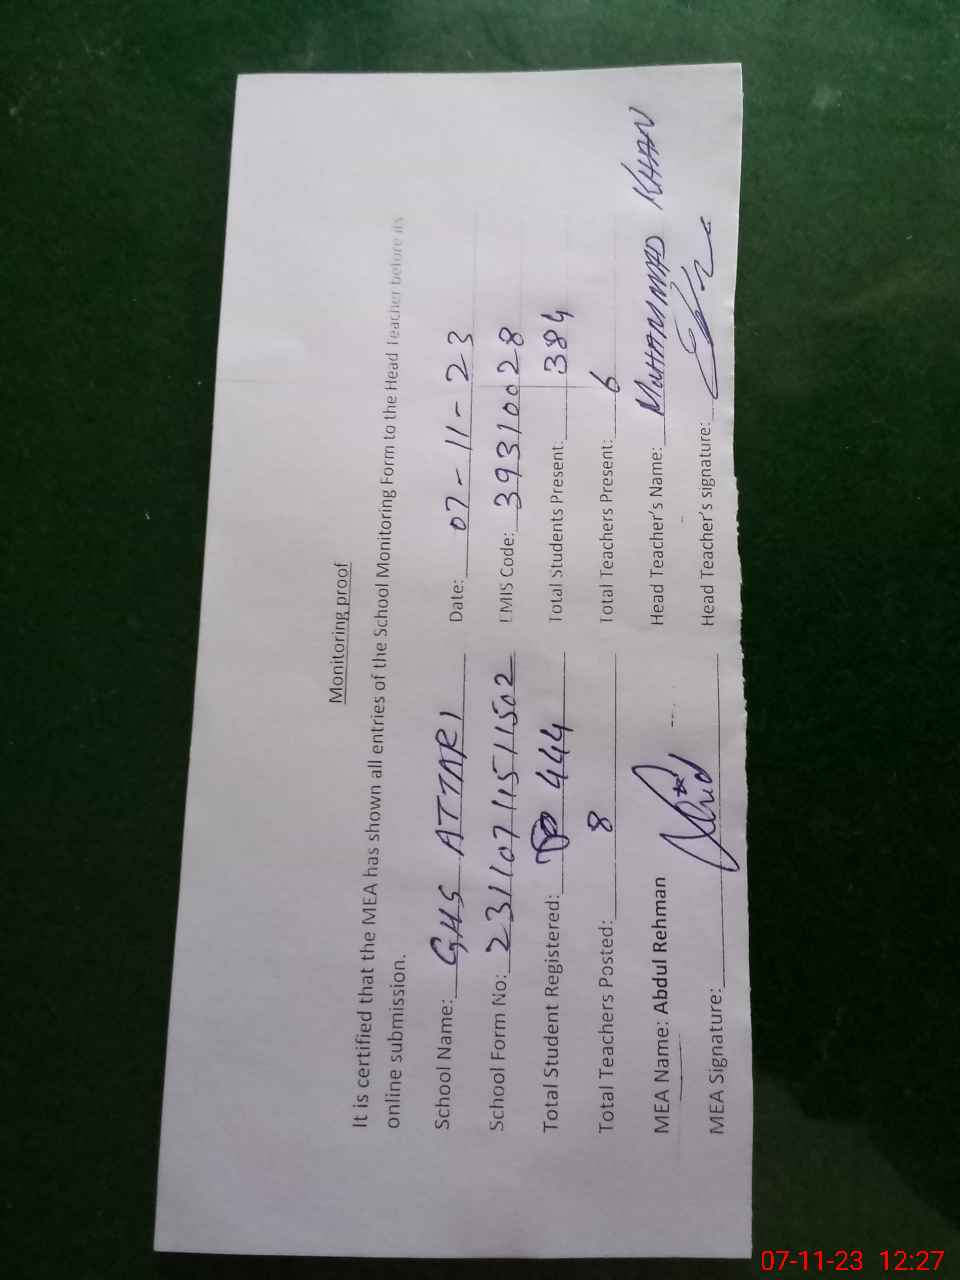 Monitoring proof
It is certified that the MEA has shown all entries of the School Monitoring Form to the Head Teacher before its
online submission.
School Name: GHS ATTARI Date: 07-11-23
School Form No: 231107115111502 EMIS Code: 39310028
Total Student Registered: 444 Total Students Present: 384
Total Teachers Posted: 8 Total Teachers Present: 6
MEA Name: Abdul Rehman Head Teacher's Name: MUHAMMAD KHAN
MEA Signature: Head Teacher's signature:
07-11-23 12:27